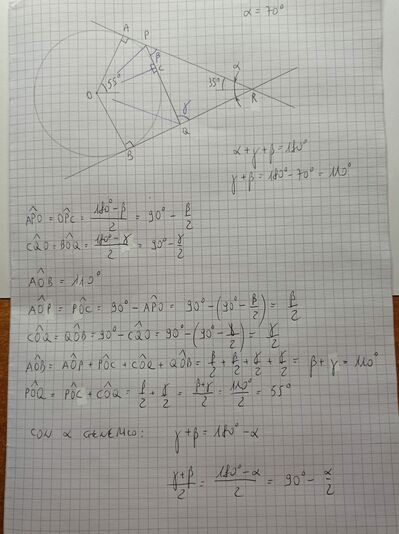 α = 70°
A
P
β
55°
C
O
35°
α
R
γ
B
Q
α + γ + β = 180°
γ + β = 180° - 70° = 110°
AP̂O = OP̂C = (180° - β)/2 = 90° - β/2
CQ̂O = BÔQ = (180° - γ)/2 = 90° - γ/2
AÔB = 110°
AÔP = PÔC = 90° - AP̂O = 90° - (90° - β/2) = β/2
CÔQ = QÔB = 90° - CQ̂O = 90° - (90° - γ/2) = γ/2
AÔB = AÔP + PÔC + CÔQ + QÔB = β/2 + β/2 + γ/2 + γ/2 = β + γ = 110°
PÔQ = PÔC + CÔQ = β/2 + γ/2 = (β+γ)/2 = 110°/2 = 55°
CON α GENERICO: γ + β = 180° - α
(γ+β)/2 = (180° - α)/2 = 90° - α/2